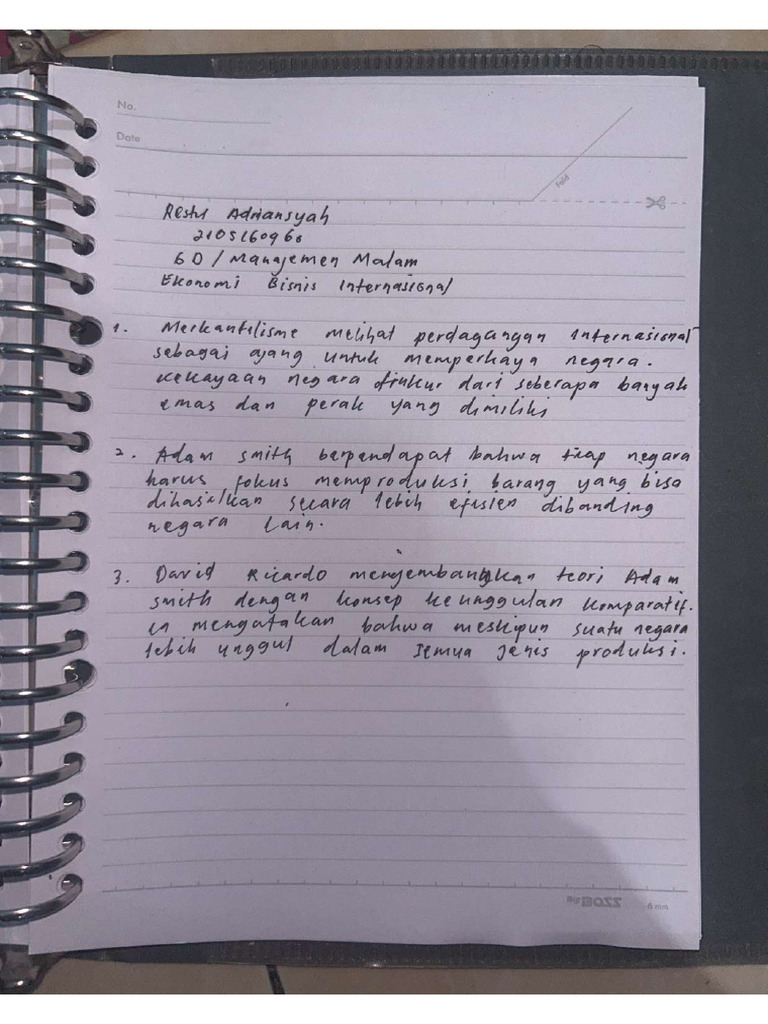 No.
Date
Fold
Restu Adriansyah
2105160960
6D / Manajemen Malam
Ekonomi Bisnis Internasional
1. Merkantilisme melihat perdagangan Internasional
sebagai ajang untuk memperkaya negara.
Kekayaan negara diukur dari seberapa banyak
emas dan perak yang dimiliki
2. Adam smith berpendapat bahwa tiap negara
harus fokus memproduksi barang yang bisa
dihasilkan secara lebih efisien dibanding
negara lain.
3. David Ricardo mengembangkan teori Adam
smith dengan konsep keunggulan komparatif.
ia mengatakan bahwa meskipun suatu negara
lebih unggul dalam semua jenis produksi.
Big BOSS 6 mm